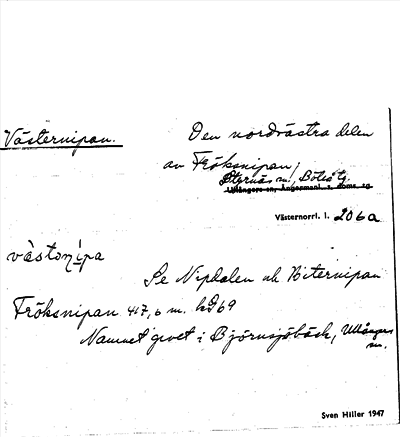 Västernipan.
Den nordvästra delen
av Fröksnipan,
Ullångers sn, Ångermanl. s. doms. tg
Västernorrl. l. 206a
västəni̱pa
Se Nipdalen och
Fröksnipan 417,6 m.
Namnet givet i Björnsjöbäck, Ullångers
sn.
Sven Hiller 1947